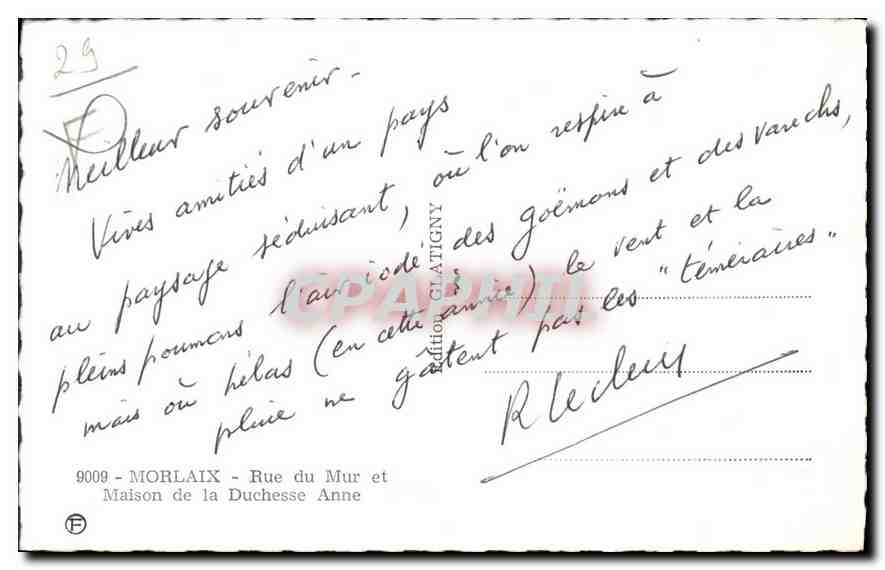 29
Meilleur souvenir -
Vives amitiés d'un pays
au paysage séduisant, où l'on respire à
pleins poumons l'air iodé des goëmons et des varechs,
mais où hélas (en cette année) le vent et la
pluie ne gâtent pas les "téméraires"
R
Edition GLATIGNY
CPAPHIL
9009 - MORLAIX - Rue du Mur et
Maison de la Duchesse Anne
F